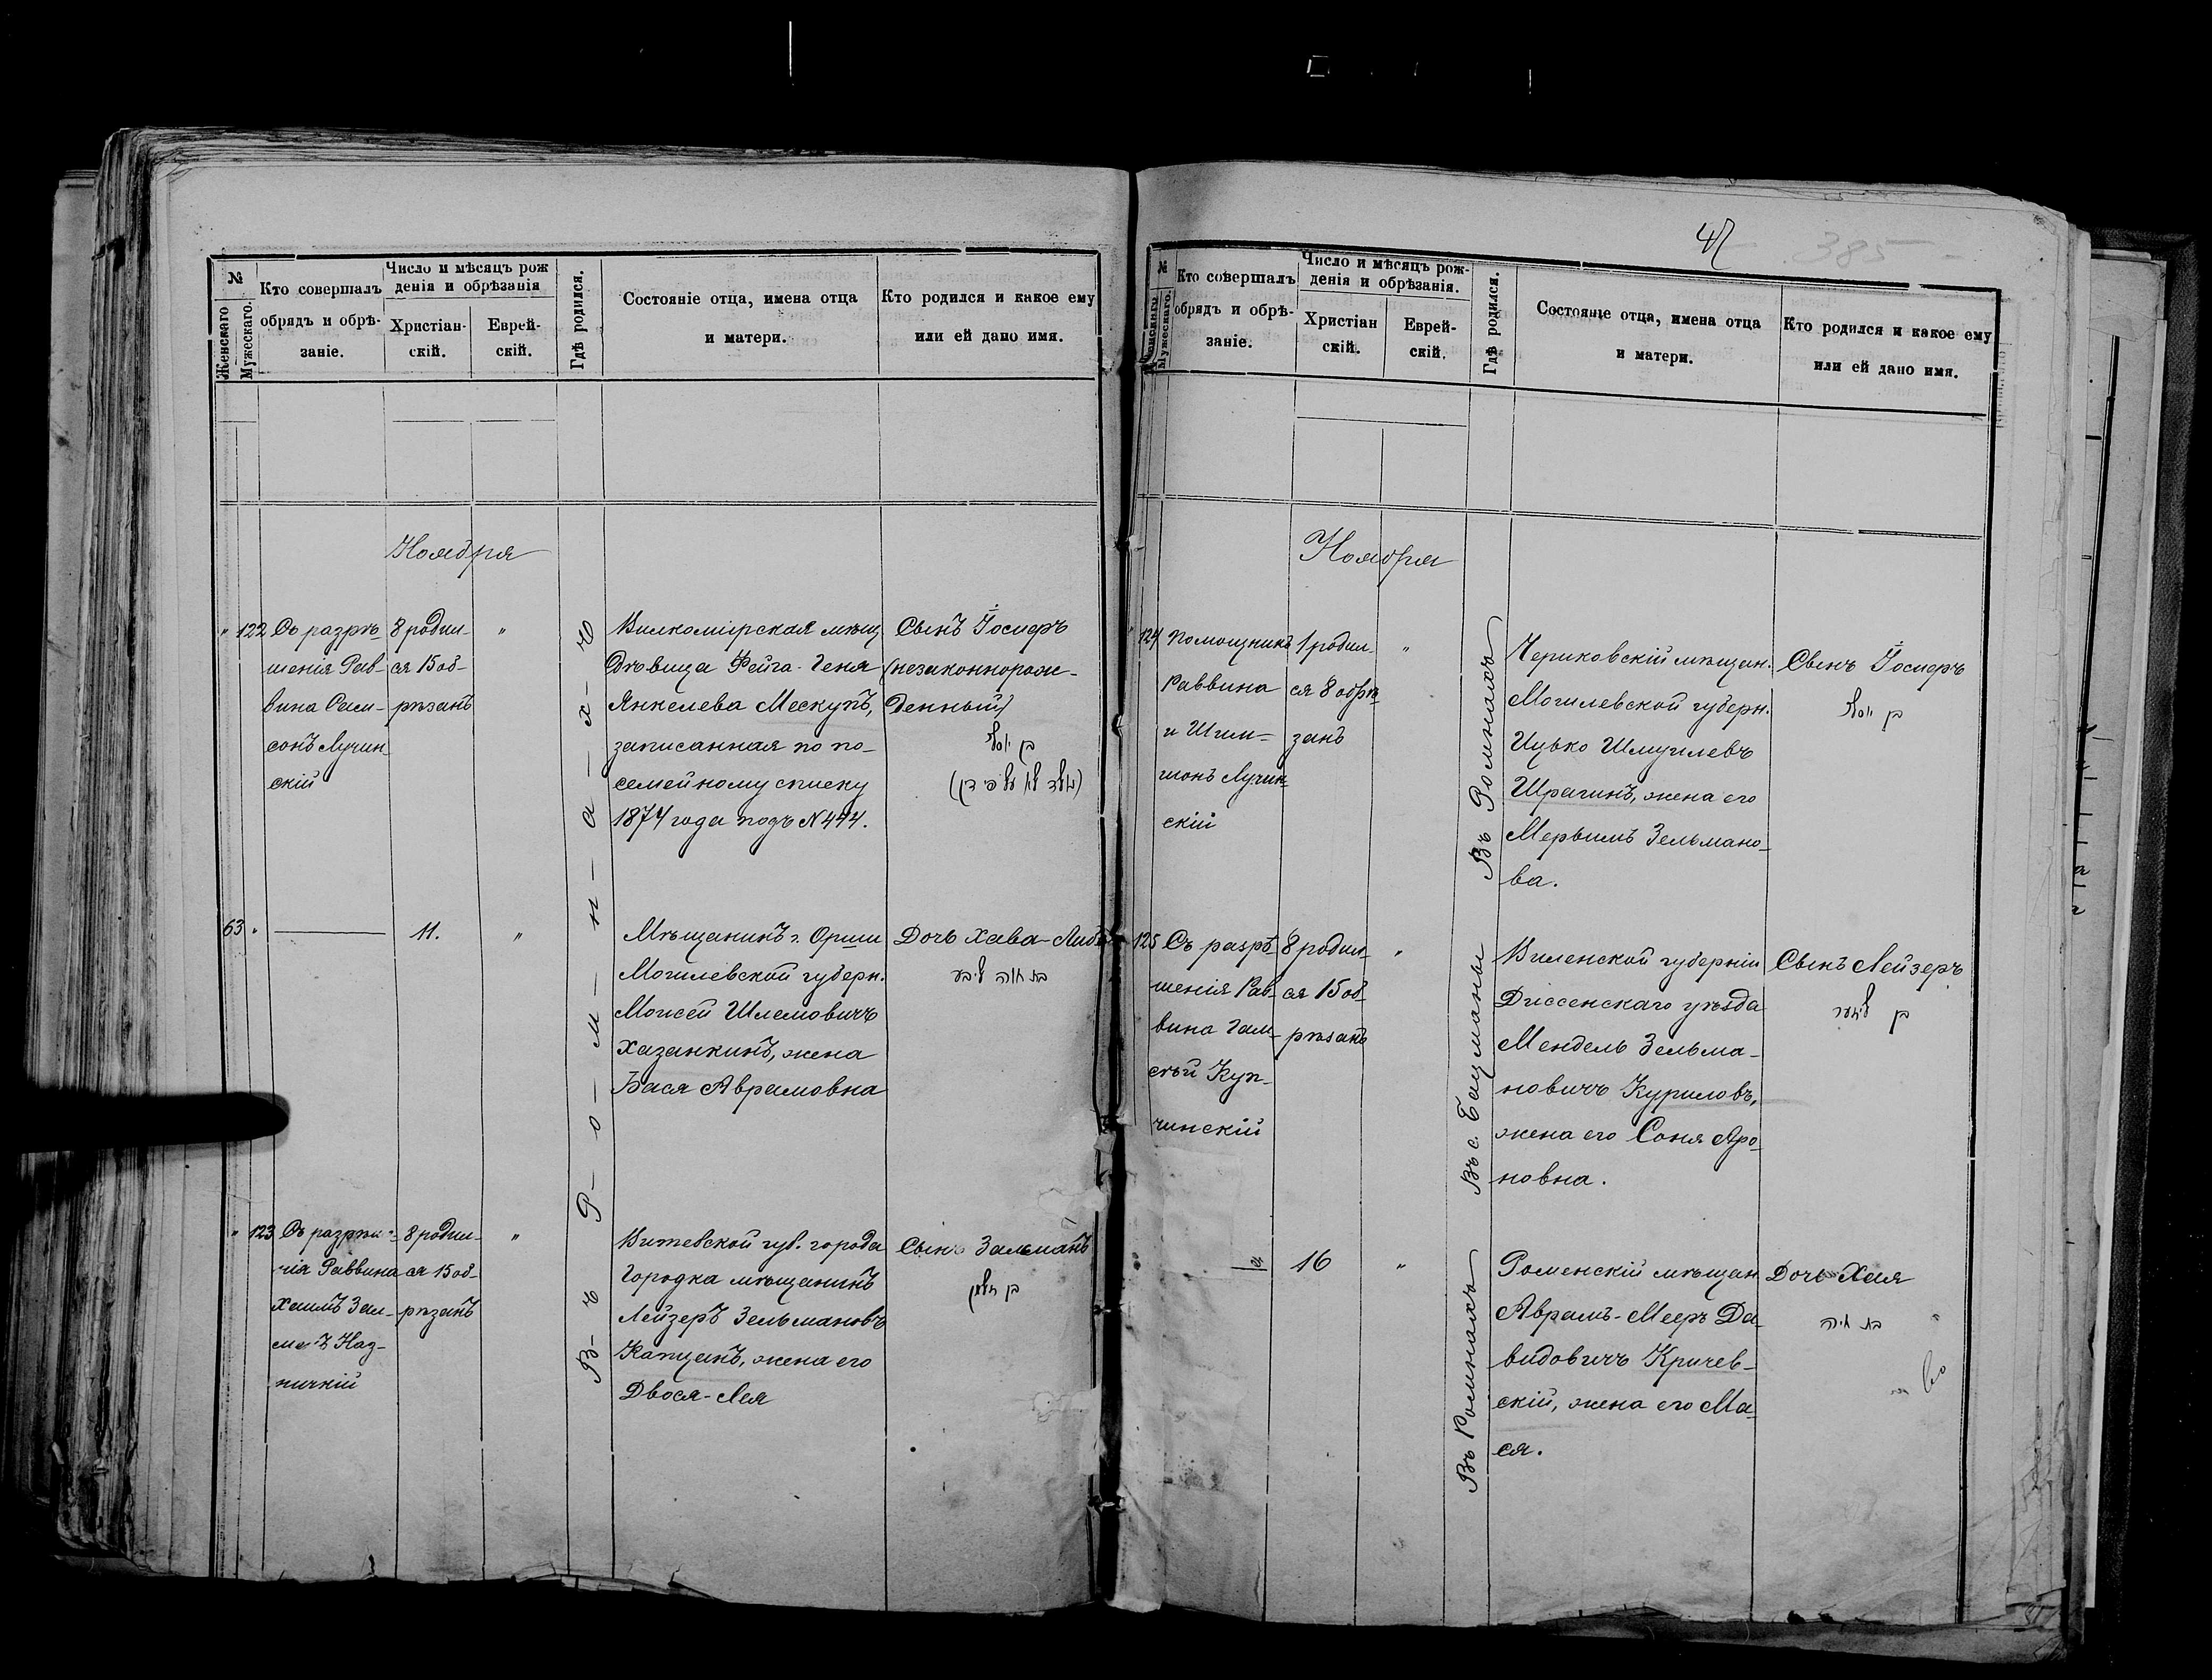 №
Женскаго
Мужескаго.
Кто совершалъ
обрядъ и обрѣ-
заніе.
Число и мѣсяцъ рож
денія и обрѣзанія
Христіан-
скій.
Еврей-
скій.
Гдѣ родился.
Состояніе отца, имена отца
и матери.
Кто родился и какое ему
или ей дано имя.
Ноября
122
Съ разрѣ-
шенія Рав-
вина Сам-
сонъ Лучин-
скій
8 родил-
ся 15 об-
рѣзанъ
"
В-ъ Р-о-м-н-а-х-ъ
Вилкомірская мѣщ
Дѣвица Фейга-Геня
Янкелева Мескупъ,
записанная по по-
семейному списку
1874 года подъ № 444.
Сынъ Іосперъ
(незаконнорож-
денный)
63 "
11.
"
Мѣщанинъ г. Орши
Могилевской губерн.
Моисей Шлемовичъ
Хазанкинъ, жена
Бася Аврамовна
Дочь Хава-Либа
בת חוה ליבע
" 123
Съ разрѣше-
нія Раввина
Хаимъ Зал-
8 родил-
ся 15 об-
рѣзанъ
"
Витебской губ. города
Городка мѣщанинъ
Лейзеръ Зельмановъ
Капцанъ, жена его
Двося-Лея
Сынъ Залманъ
בן זלמן
47 385
№
Женскаго
Мужескаго.
Кто совершалъ
обрядъ и обрѣ-
заніе.
Число и мѣсяцъ рож-
денія и обрѣзанія.
Христіан
скій.
Еврей-
скій.
Гдѣ родился.
Состояніе отца, имена отца
и матери.
Кто родился и какое ему
или ей дано имя.
Ноября
124
Помощникъ
раввина
и Шим-
шонъ Лучин-
скій
1 родил-
ся 8 обрѣ-
занъ
"
Въ Ромнахъ
Чериковскій мѣщан.
Могилевской губерн.
Ицько Шмуилевъ
Шрагинъ, жена его
Мерьимъ Зельмано-
ва.
Сынъ Іосперъ
125
Съ разрѣ-
шенія Рав-
вина
8 родил-
ся 15 об-
рѣзанъ
"
Въ с. Бацманы
Виленской губерніи
Диссенскаго уѣзда
Мендель Зельма-
новичъ Куриловъ,
жена его Соня Аро-
новна.
Сынъ Лейзеръ
בן לייזער
16
"
Въ Ромнахъ
Роменскій мѣщан
Аврамъ-Мееръ Да-
видовичъ Кричев-
скій, жена его Ма-
ся.
Дочь Хая
בת חיה